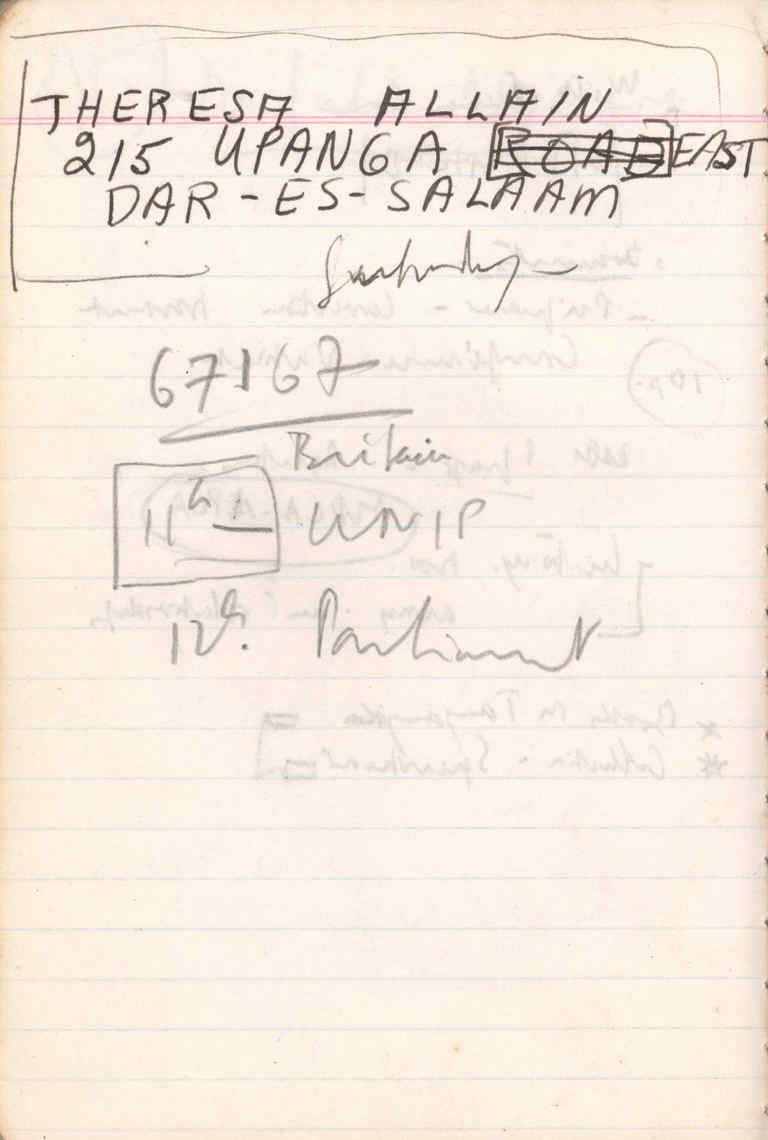 THERESA ALLAIN
215 UPANGA ROAD EAST
DAR-ES-SALAAM
67167
Britain
11th — UNIP
12th. Parliament